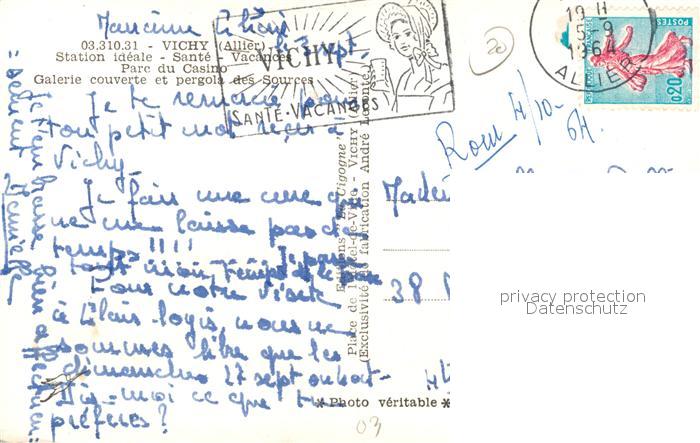 03.310.31 - VICHY (Allier)
Station idéale - Santé - Vacances
Parc du Casino
Galerie couverte et pergola des Sources
Je te remercie pour
ton petit mot reçu à
Vichy.
Je fais une cure qui
ne me laisse pas de
temps !!!!
Pour notre visite
à
nous ne
sommes libre que les
dimanches 27 sept ou 4 oct-
Dis-moi ce que tu
préfères ?
Je t'embrasse bien affectueu=
=sement
VICHY
SANTÉ-VACANCES
19 H
15-9
1964
ALLIER
POSTES
0,20
20
4/10-
64.
38
Editions "La Cigogne"
Place de l'Hôtel-de-Ville - VICHY (Allier)
(Exclusivité de fabrication André
* Photo véritable *
03
privacy protection
Datenschutz